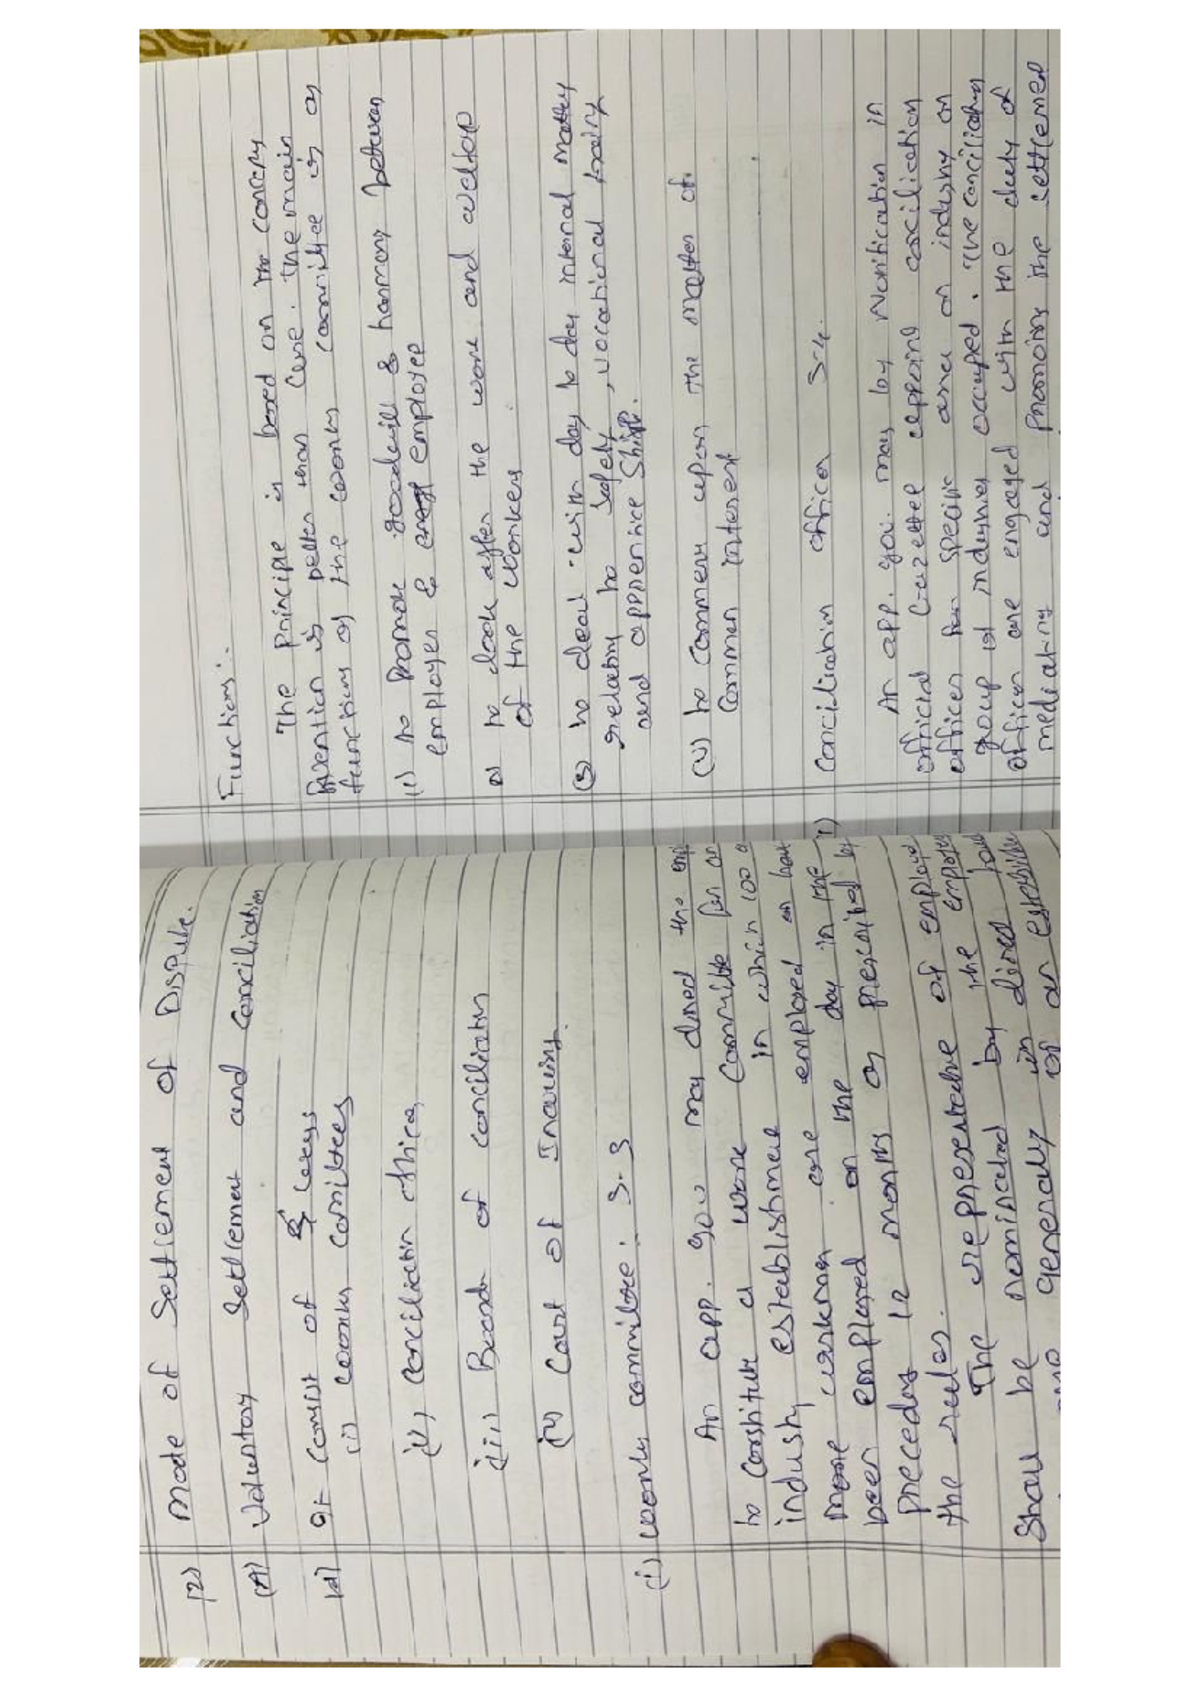 (2) Mode of Settlement of Dispute.
(A) Voluntary Settlement and Conciliation
(d) It consist of
(i) works committees
(ii) conciliation officer
(iii) Board of conciliation
(iv) Court of
(i) works committee : S.3
An app. gov may direct the
to constitute a work committee for an
industry establishment in which 100 o
more workman are employed or hav
been employed on the day in the
precedes 12 months as prescribed by
the rules.
The representative of employe
shall be nominated by the employe
Functions :-
The Principle is based on the
is better than Cure. The main
functions of the works committee is as
(i) to Promote goodwill & harmony between
employer & employee
to look after the work and welfare
of the workers
(3) to deal with day to day internal matter
relating to safety, vocational
and apprentice Ship.
to comment upon the matter of
Common interest
Conciliation officer S-4.
An app. gov. may by Notification in
official Gazettee appoint concilication
officer for specific area or industry or
group of industries occupied. The conciliation
officer are engaged with the duty of
mediating and the settlemed